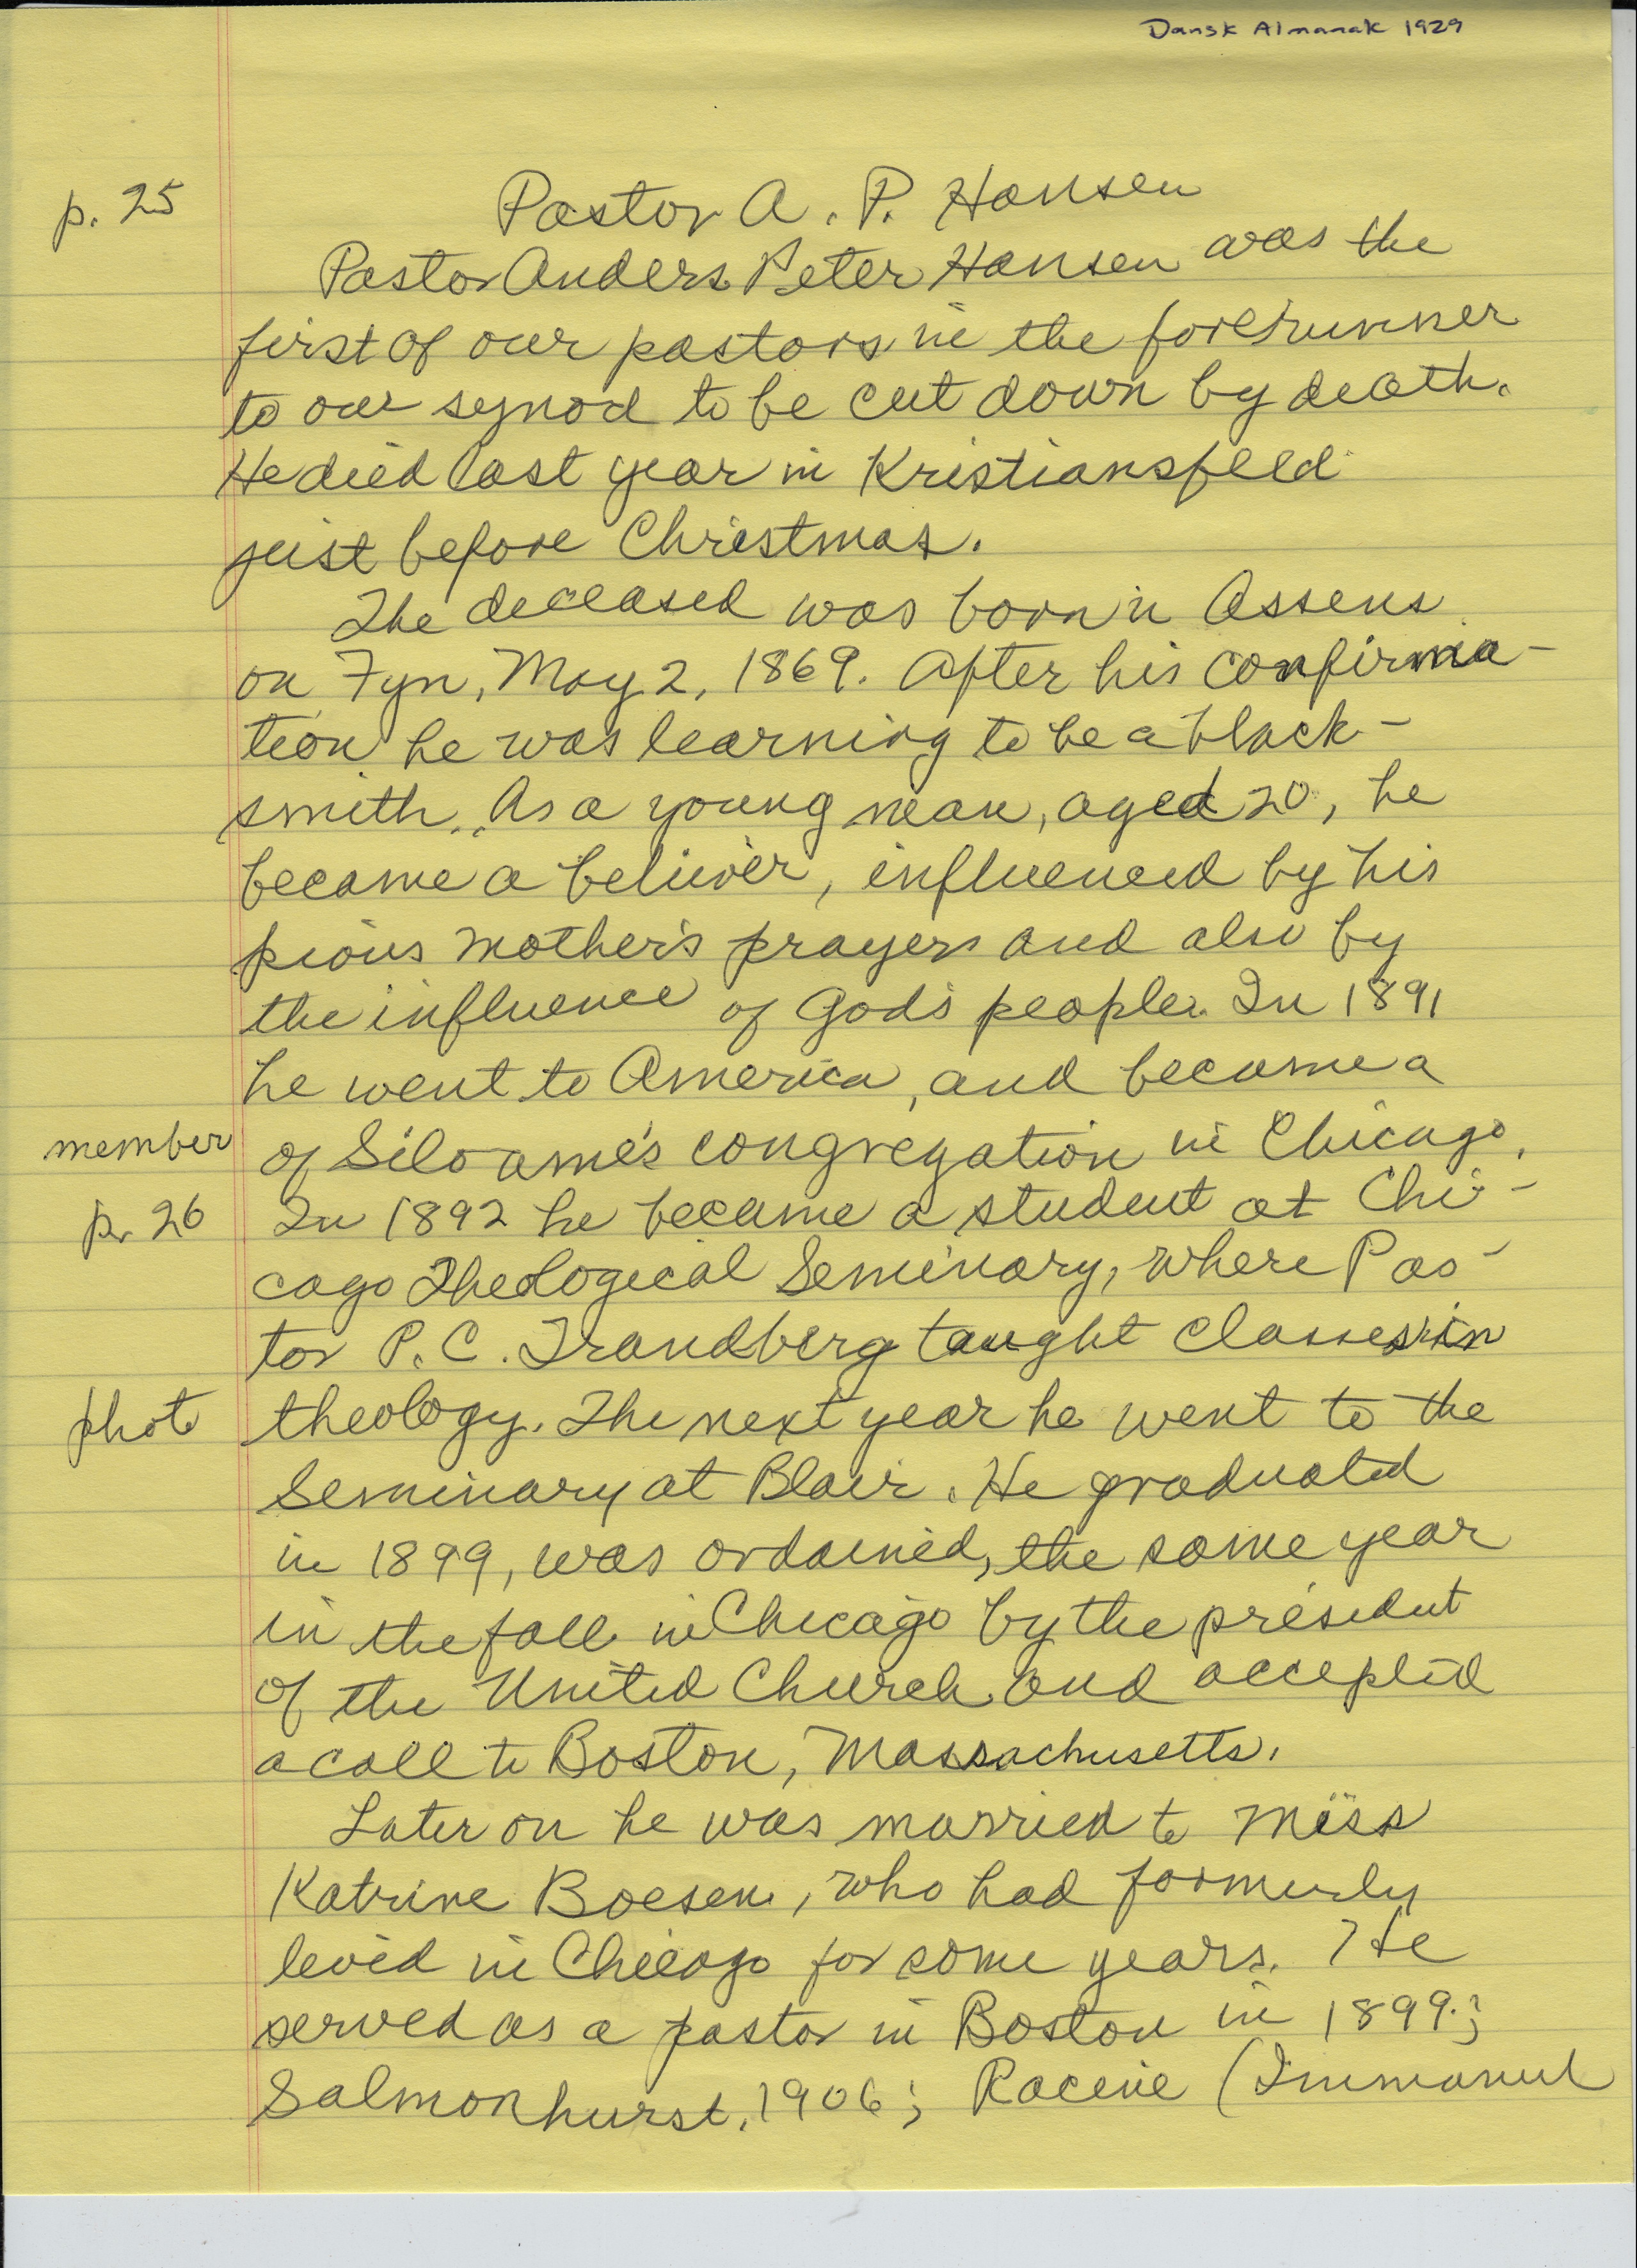 Dansk Almanak 1929
p. 25
Pastor A. P. Hansen
Pastor Anders Peter Hansen was the
first of our pastors in the forerunner
to our synod to be cut down by death.
He died last year in Kristiansfeld
just before Christmas.
The deceased was born in Assens
on Fyn, May 2, 1869. After his confirma-
tion he was learning to be a black-
smith. As a young man, aged 20, he
became a believer, influenced by his
pious mother's prayers and also by
the influence of God's people. In 1891
he went to America, and became a
member of Siloame's congregation in Chicago.
p. 26 In 1892 he became a student at Chi-
cago Theological Seminary, where Pas-
tor P. C. Trandberg taught classes in
photo theology. The next year he went to the
Seminary at Blair. He graduated
in 1899, was ordained, the same year
in the fall in Chicago by the president
of the United Church and accepted
a call to Boston, Massachusetts.
Later on he was married to Miss
Katrine Boesen, who had formerly
lived in Chicago for some years. He
served as a pastor in Boston in 1899;
Salmonhurst, 1906; Racine (Immanuel